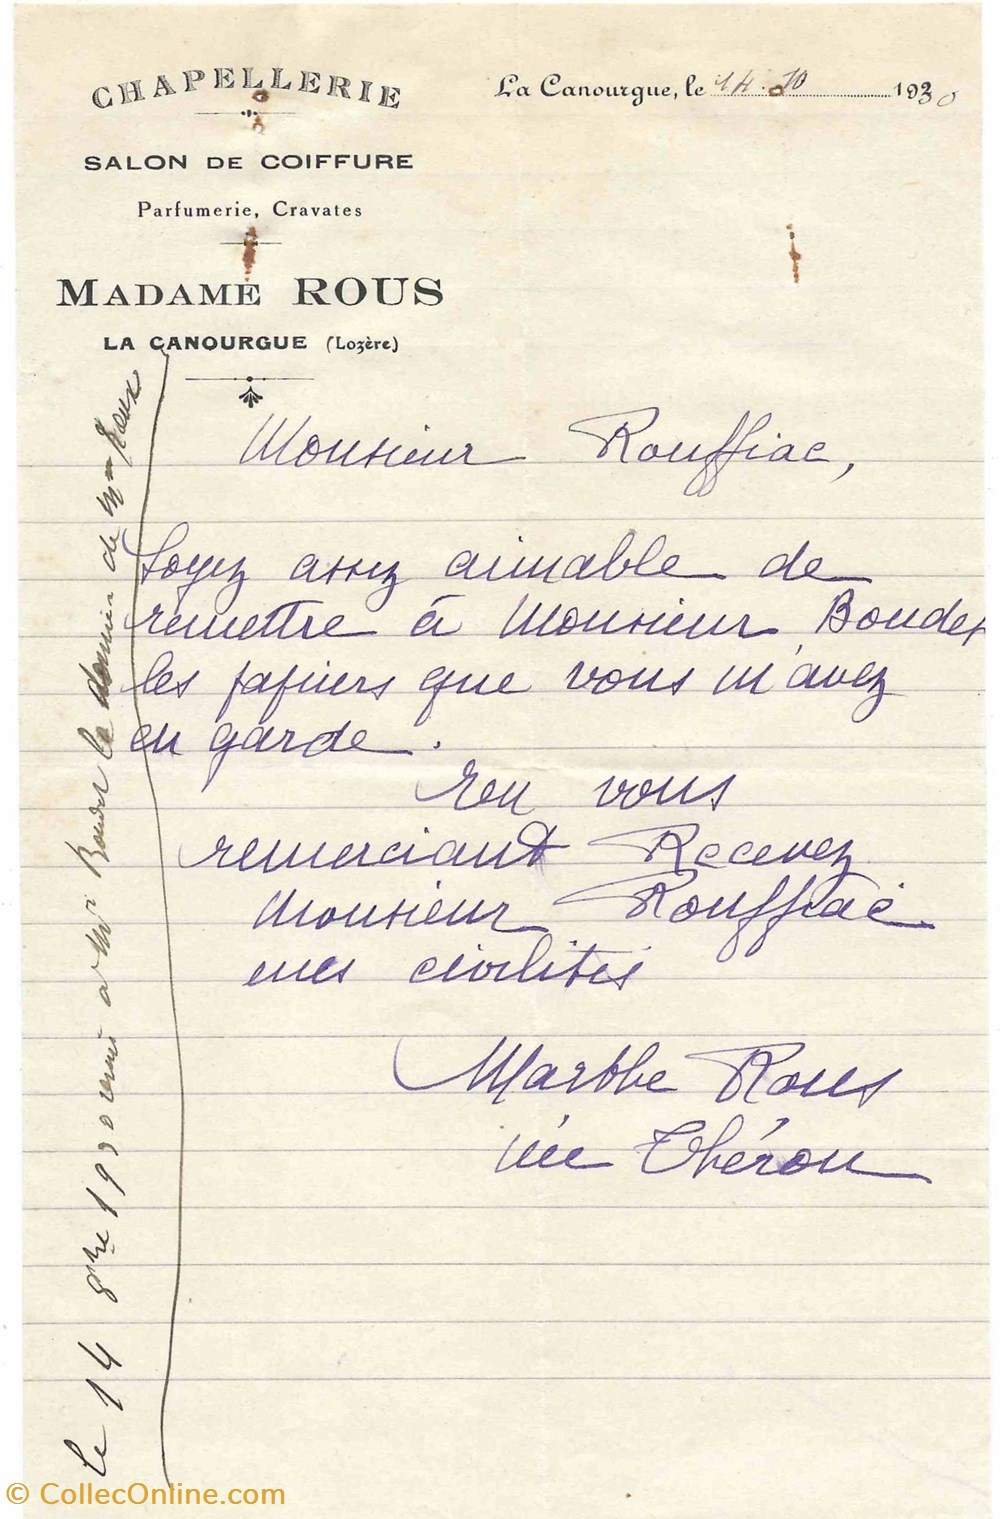 CHAPELLERIE
SALON DE COIFFURE
Parfumerie, Cravates
MADAME ROUS
LA CANOURGUE (Lozère)
La Canourgue, le 14.10 1930
Monsieur Rouffiac,
Soyez assez aimable de
remettre à Monsieur Boudet
les papiers que vous m'avez
en garde.
En vous
remerciant Recevez
Monsieur Rouffiac
mes civilités
Marthe Rous
née Théron
Le 14 8bre 1930 remis à Mr le de Mme Roux
© CollecOnline.com